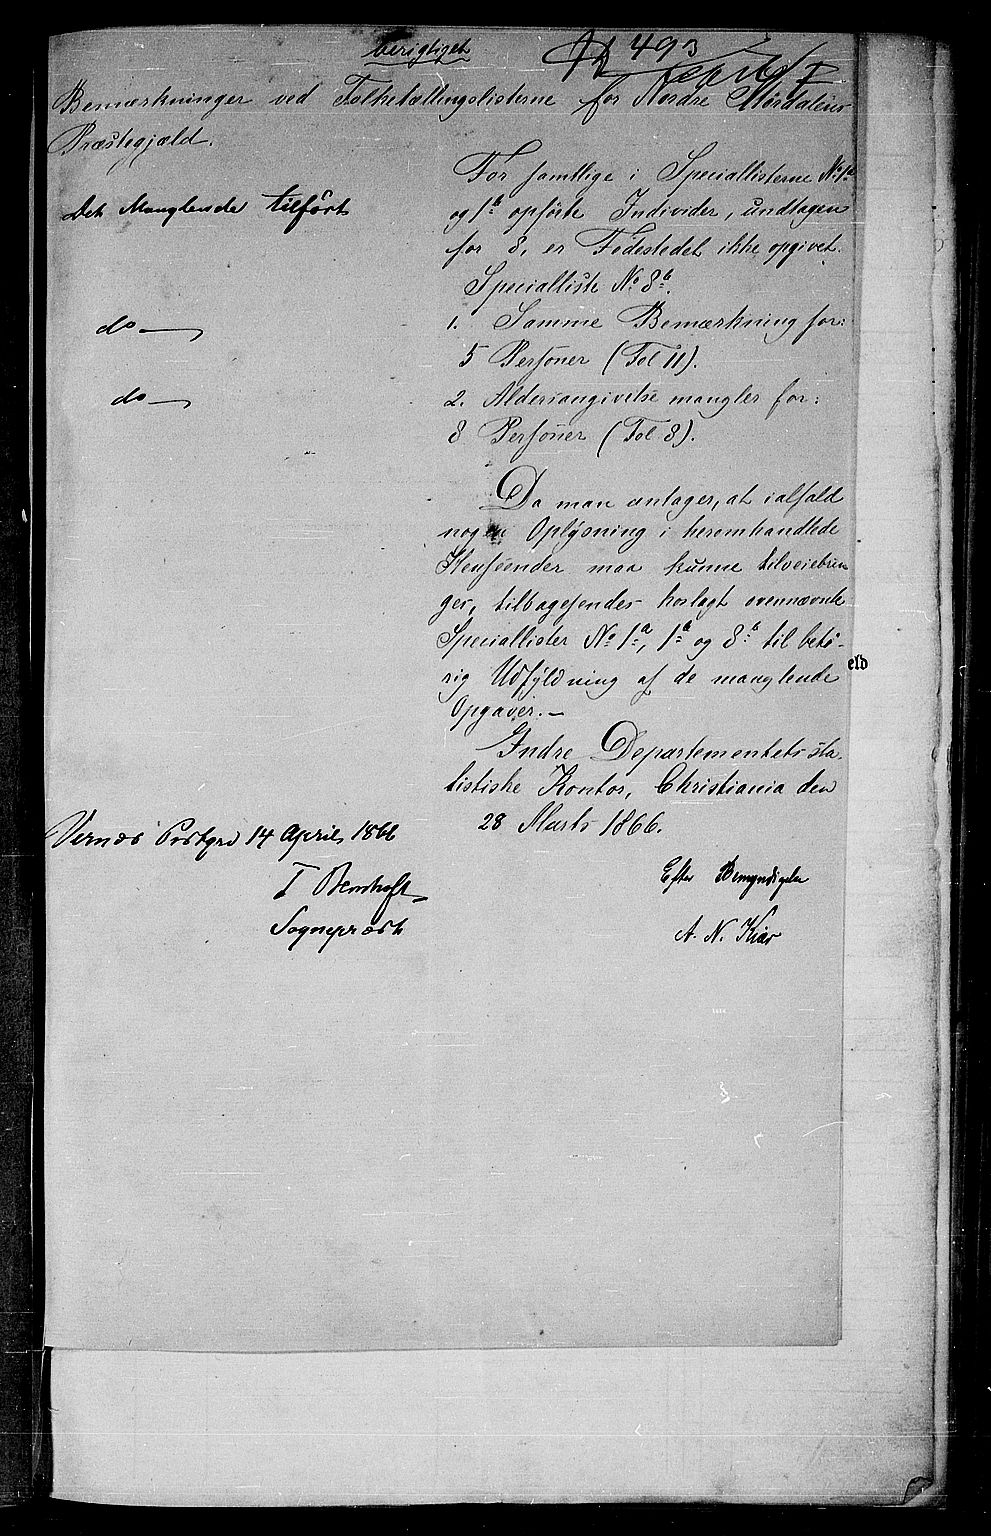 berigtiget
493
Bemærkninger ved Folketællingslisterne for Nordre Størdalens
Præstegjæld.
For samtlige i Speciallisterne No 1a
Det Manglende tilført
og 1b opførte Individer, undtagen
for 8, er Fødestedet ikke opgivet.
Specialliste No 8b.
do
1. Samme Bemærkning for:
5 Personer (Fol 11).
do
2. Aldersangivelse mangler for:
8 Personer (Fol 8).
Da man antager, at ialfald
nogen Oplysning i heromhandlede
Henseender maa kunne tilveiebrin
ges, tilbagesendes hoslagt ovennævnte
Speciallister No 1a, 1b og 8b til behø-
rig Udfyldning af de manglende
eld
Opgaver.—
Indre Departementets sta-
tistiske Kontor, Christiania den
28 Marts 1866.
Vernæs Prstgrd 14 April 1866
Efter Bemyndigelse
Sognepræst
A. N. Kiær